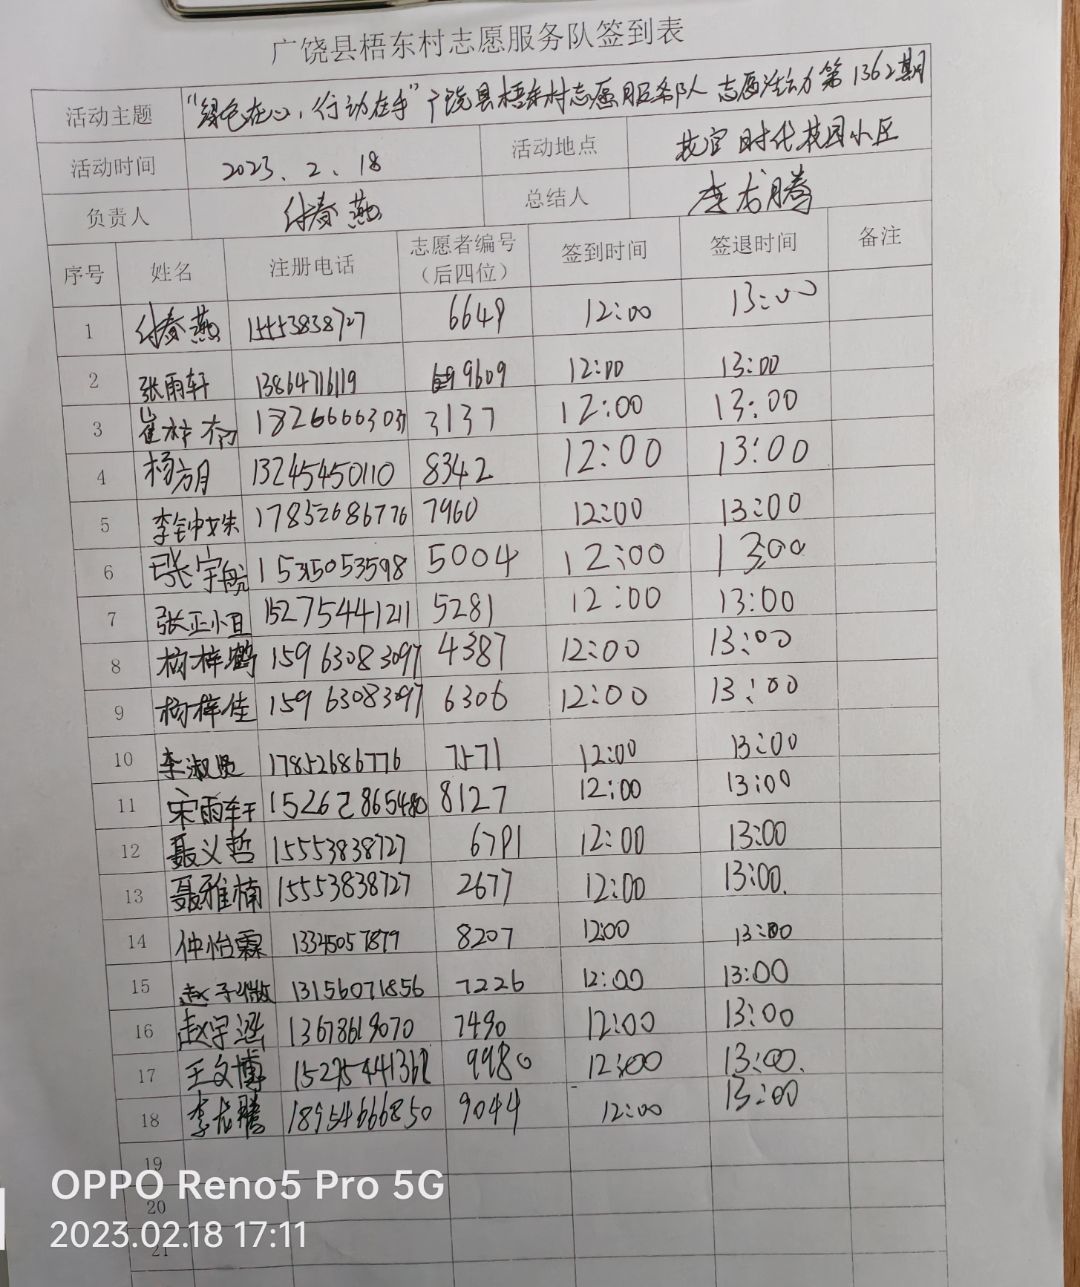 广饶县梧东村志愿服务队签到表
活动主题 "绿色在心，行动在手"广饶县梧东村志愿服务队 志愿活动第1362期
活动时间 2023.2.18 活动地点 时代花园小区
负责人 付春燕 总结人 李龙腾
序号 姓名 注册电话 志愿者编号（后四位） 签到时间 签退时间 备注
1 付春燕 15553838727 6649 12:00 13:00
2 张雨轩 13864716119 9609 12:00 13:00
3 崔梓 18266663037 3137 12:00 13:00
4 杨方月 13245450110 8342 12:00 13:00
5 李钟姝 17852686776 7960 12:00 13:00
6 张宇航 15315053598 5004 12:00 13:00
7 张正小旦 15275441211 5281 12:00 13:00
8 杨梓鹤 15963083097 4387 12:00 13:00
9 杨梓佳 15963083097 6306 12:00 13:00
10 李淑贤 17852686776 7571 12:00 13:00
11 宋雨轩 15262865480 8127 12:00 13:00
12 聂义哲 15553838727 6791 12:00 13:00
13 聂雅楠 15553838727 2677 12:00 13:00.
14 仲怡霖 13345057879 8207 12:00 13:00
15 赵子 13156071856 7226 12:00 13:00
16 赵宇涵 13678619070 7490 12:00 13:00
17 王文博 9980 12:00 13:00.
18 李龙腾 18954666850 9044 12:00 13:00
19
20
21
OPPO Reno5 Pro 5G
2023.02.18 17:11